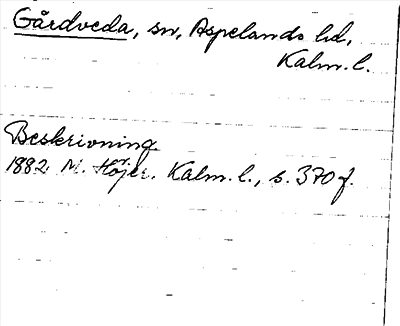 Gårdveda, sn, Aspelands hd,
Kalm. l.
Beskrivning.
1882 M. Höjer. Kalm. l., s. 370 f.